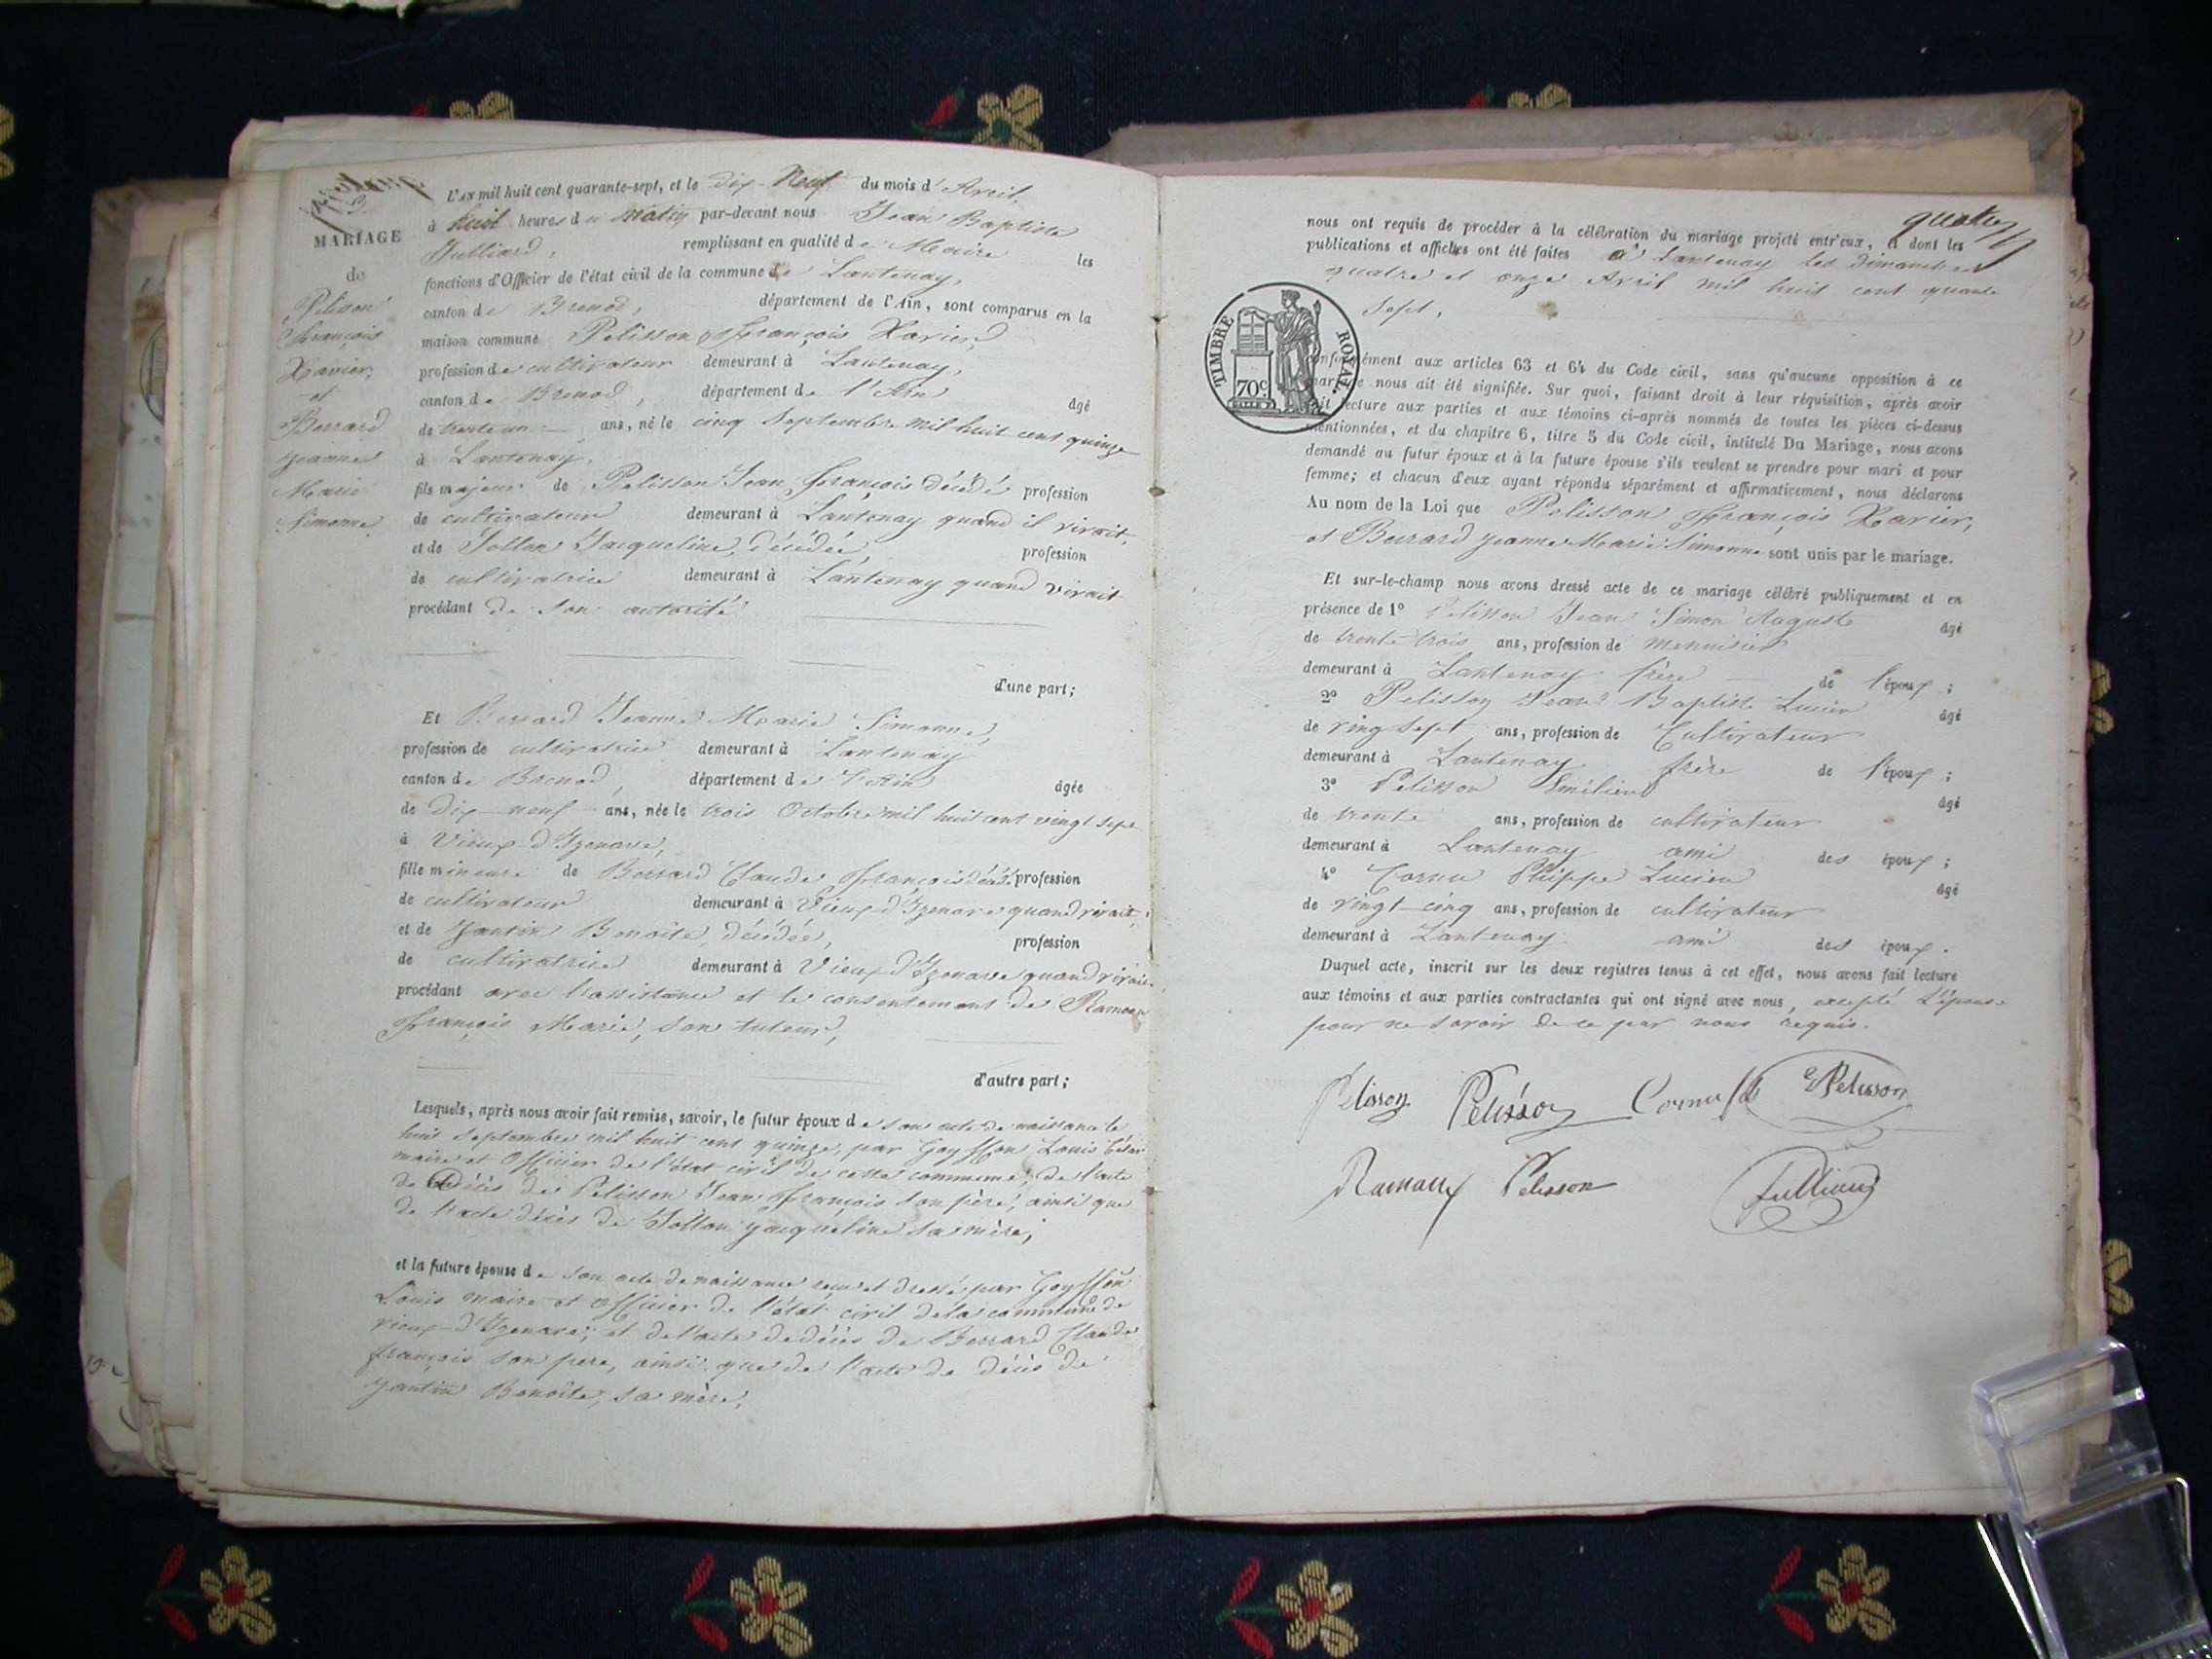 MARIAGE
de
Pelisson
François
Xavier,
et
Berrard
Jeanne
Marie
Simonne
L'AN mil huit cent quarante-sept, et le dix-Neuf du mois d'Avril,
à huit heures du matin par-devant nous Jean Baptiste
Julliard, remplissant en qualité de Maire les
fonctions d'Officier de l'état civil de la commune de Lantenay,
canton de Brenod, département de l'Ain, sont comparus en la
maison commune Pelisson François Xavier,
profession de cultivateur demeurant à Lantenay,
canton de Brenod, département de l'Ain âgé
de trente un ans, né le cinq Septembre mil huit cent quinze
à Lantenay,
fils majeur de Pelisson Jean François décédé profession
de cultivateur demeurant à Lantenay quand il vivait,
et de Jollon Jacqueline, décédée, profession
de cultivatrice demeurant à Lantenay quand vivait
procédant de son autorité
d'une part;
Et Berrard Jeanne Marie Simonne,
profession de cultivatrice demeurant à Lantenay
canton de Brenod, département de l'Ain âgée
de dix-neuf ans, née le trois Octobre mil huit cent vingt sept
à Vieux-d'Izenave,
fille mineure de Berrard Claude François décédé profession
de cultivateur demeurant à Vieux-d'Izenave quand vivait,
et de Jantin Benoîte, décédée, profession
de cultivatrice demeurant à Vieux d'Izenave quand vivait,
procédant avec l'assistance et le consentement de Ramaux
François Marie, son tuteur,
d'autre part;
Lesquels, après nous avoir fait remise, savoir, le futur époux de son acte de naissance le
huit septembre mil huit cent quinze, par Goyffon Louis César
maire et Officier de l'état civil de cette commune, de l'acte
de Décès de Pelisson Jean François son père, ainsi que
de l'acte décès de Jollon Jacqueline sa mère,
et la future épouse de son acte de naissance reçu et dressé par Goyffon
Louis maire et officier de l'état civil de la commune de
vieux-d'Izenave; et de l'acte de décès de Berrard Claude
françois son père, ainsi que de l'acte de décès de
Jantin Benoîte, sa mère,
quatre
nous ont requis de procéder à la célébration du mariage projeté entr'eux, et dont les
publications et affiches ont été faites à Lantenay les Dimanches
quatre et onze Avril mil huit cent quarante
Sept,
TIMBRE ROYAL.
70c
conformément aux articles 63 et 64 du Code civil, sans qu'aucune opposition à ce
mariage nous ait été signifiée. Sur quoi, faisant droit à leur réquisition, après avoir
fait lecture aux parties et aux témoins ci-après nommés de toutes les pièces ci-dessus
mentionnées, et du chapitre 6, titre 5 du Code civil, intitulé Du Mariage, nous avons
demandé au futur époux et à la future épouse s'ils veulent se prendre pour mari et pour
femme; et chacun d'eux ayant répondu séparément et affirmativement, nous déclarons
Au nom de la Loi que Pelisson François Xavier,
et Berrard Jeanne Marie Simonne sont unis par le mariage.
Et sur-le-champ nous avons dressé acte de ce mariage célébré publiquement et en
présence de 1° Pelisson Jean Simon Auguste âgé
de trente-trois ans, profession de Menuisier
demeurant à Lantenay frère de l'époux;
2° Pelisson Jean Baptiste Lucien âgé
de ving sept ans, profession de Cultivateur
demeurant à Lantenay frère de l'époux;
3° Pelisson Emilien âgé
de trente ans, profession de cultivateur
demeurant à Lantenay ami des époux;
4° Cornu Phippe Lucien âgé
de vingt-cinq ans, profession de cultivateur
demeurant à Lantenay ami des époux.
Duquel acte, inscrit sur les deux registres tenus à cet effet, nous avons fait lecture
aux témoins et aux parties contractantes qui ont signé avec nous, excepté l'épouse
pour ne savoir de ce par nous requis.
Pelisson Pelisson Cornu Pelisson
Ramaux Pelisson Julliard